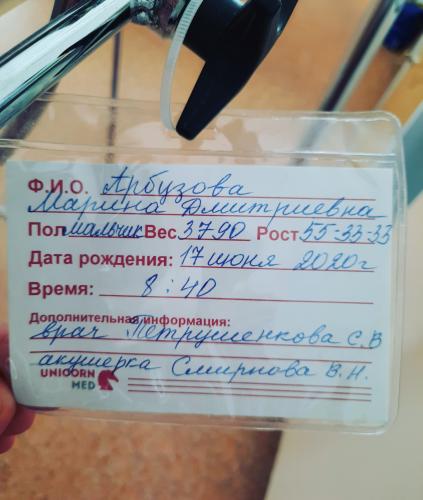 Ф.И.О. Арбузова
Марина Дмитриевна
Пол мальчик Вес 3790 Рост 55-33-33
Дата рождения: 17 июня 2020г
Время: 8:40
Дополнительная информация:
врач Петрушенкова С.В
акушерка Смирнова В.Н.
UNICORN
MED